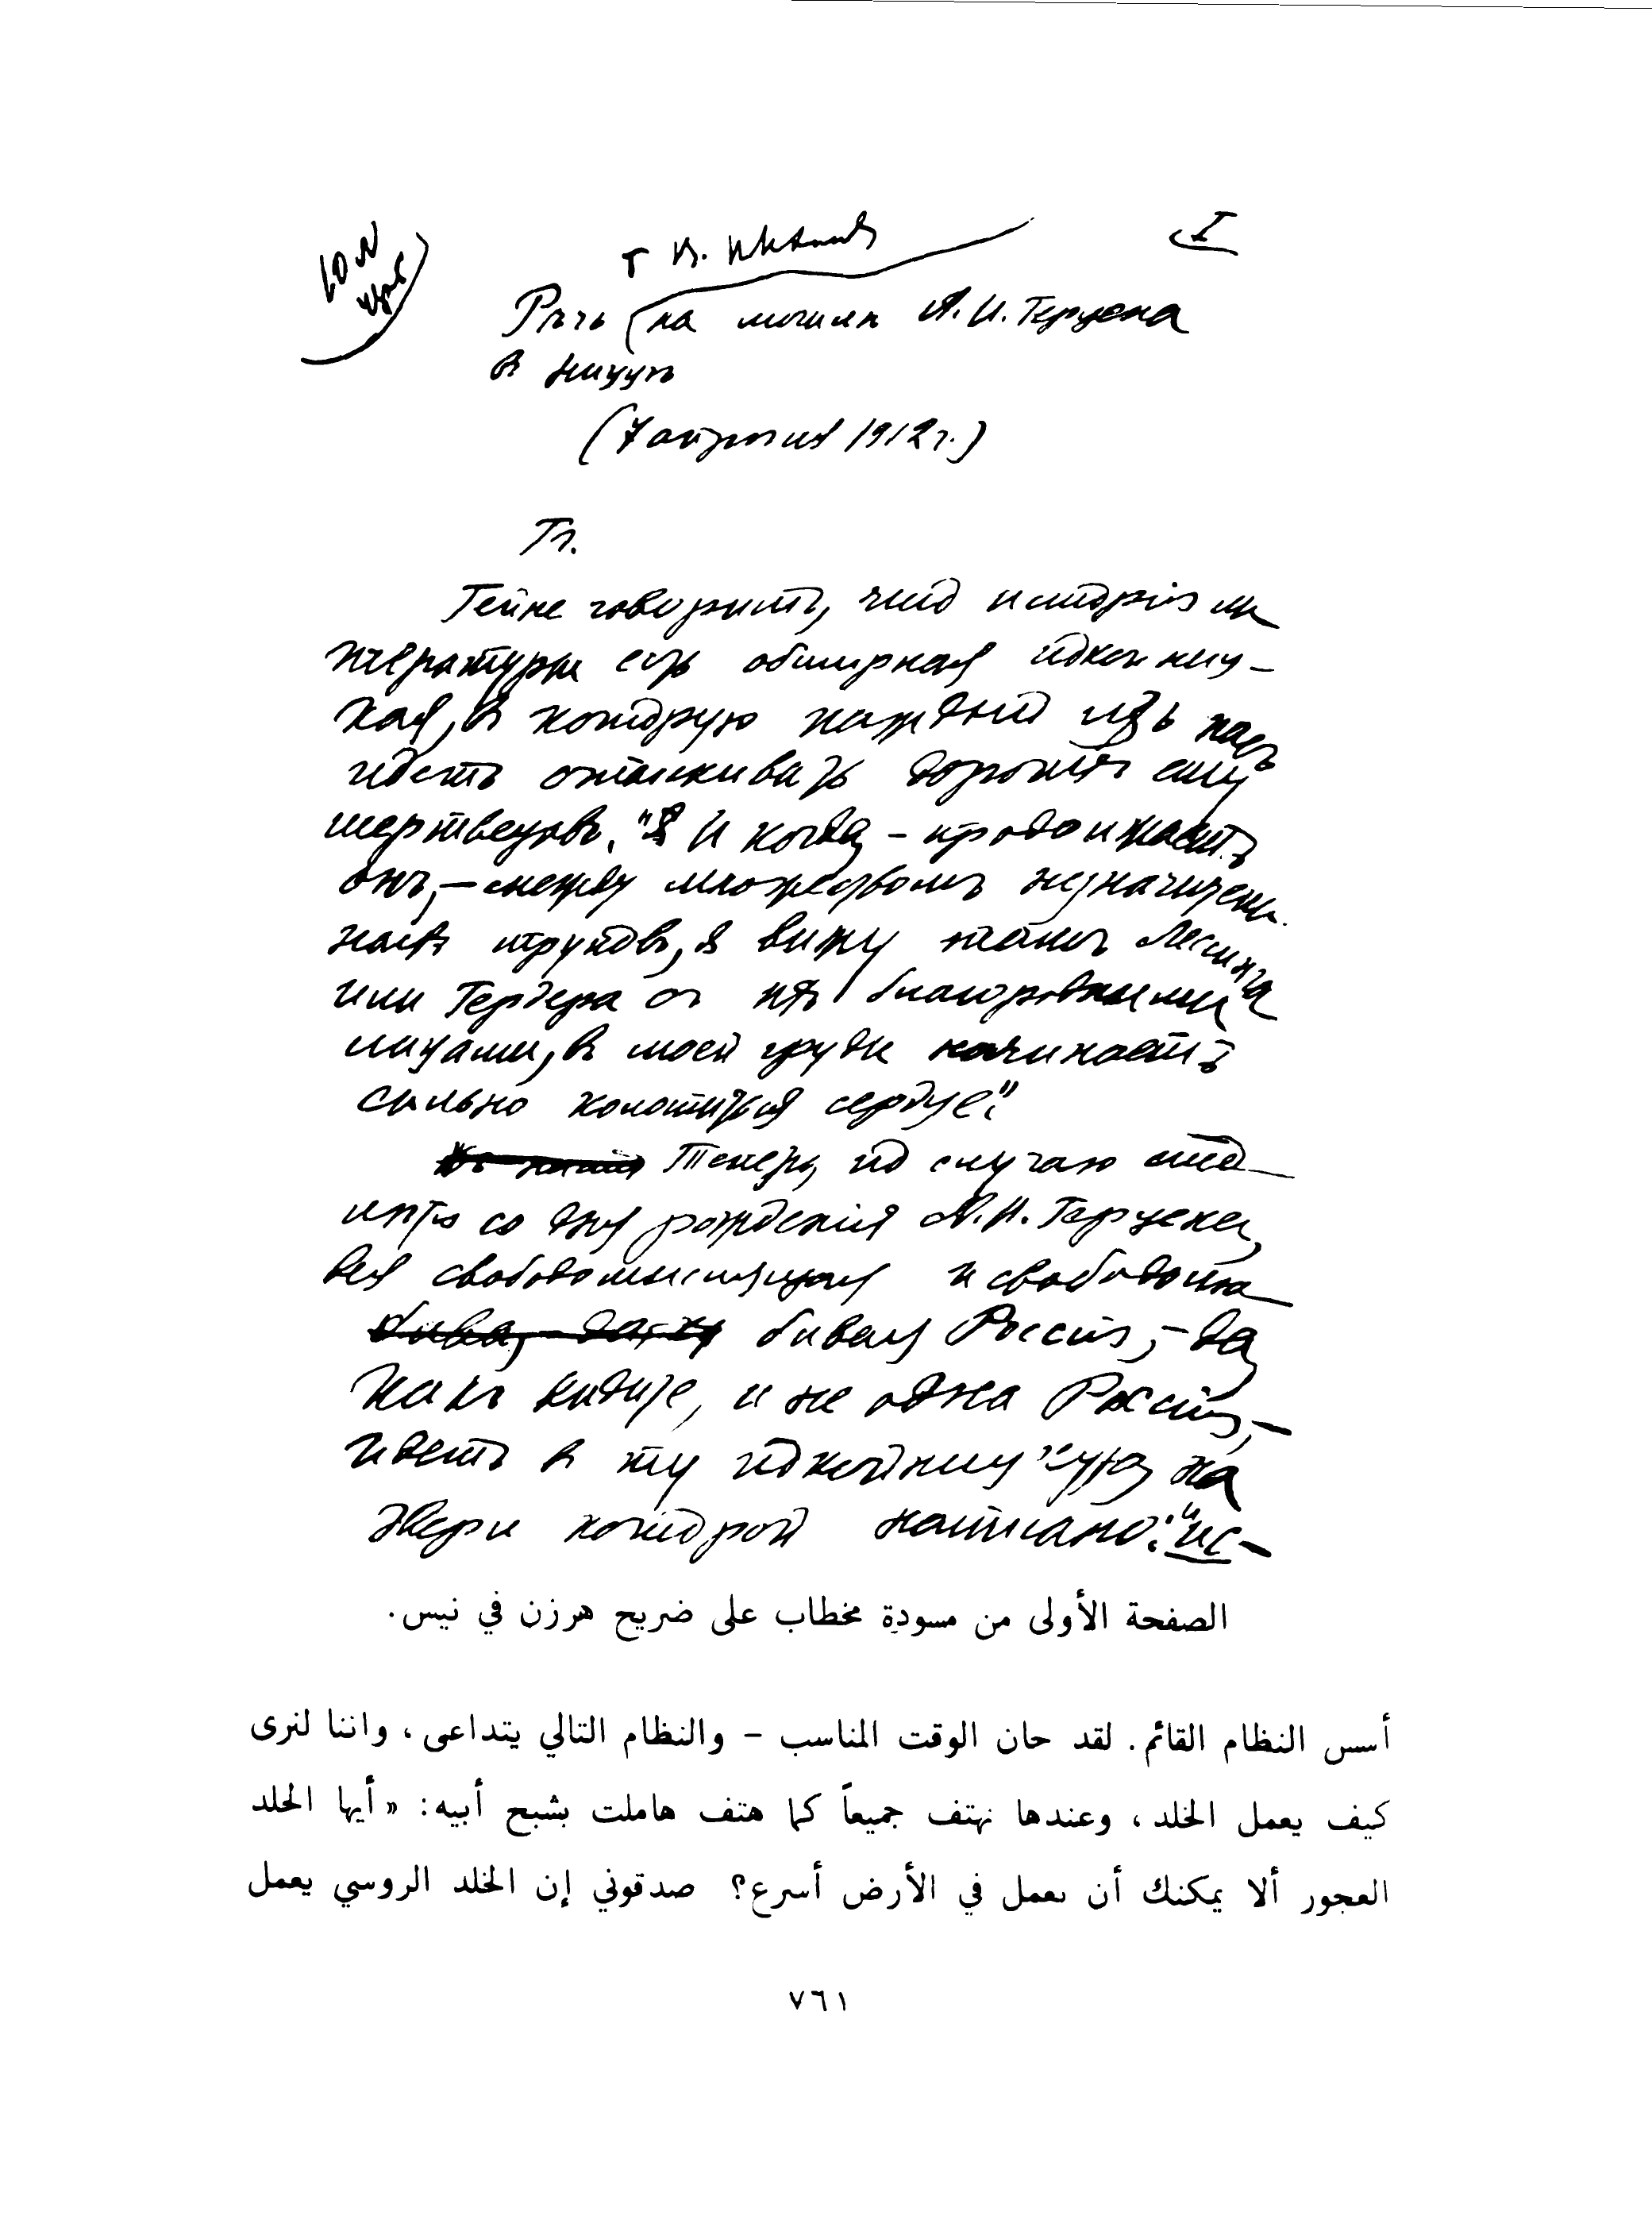 I
Рѣчь на могилѣ А. И. Герцена
в Ниццѣ
(7 апрѣля 1912 г.)
Гг.
Гейне говоритъ, что исторія ли-
тературы есть обширная покойниц-
кая, в которую каждый изъ насъ
идетъ отыскивать дорогихъ ему
мертвецовъ. "И когда – продолжаетъ
онъ, – между множествомъ незначитель-
ныхъ труповъ, я вижу тамъ Лессинга
или Гердера съ ихъ благородными
лицами, в моей груди начинаетъ
сильно колотиться сердце".
Теперь, по случаю сто-
лѣтія со дня рожденія А. И. Герцена,
вся свободомыслящая и свободолю-
бивая Россія, – да,
какъ видите, и не одна Россія, –
идетъ в ту покойницкую, на
двери которой написано: "ис-
الصفحة الأولى من مسودة مخطاب على ضريح هرزن في نيس.
أسس النظام القائم. لقد حان الوقت المناسب – والنظام التالي يتداعى، واننا لنرى
كيف يعمل الخلد، وعندها نهتف جميعاً كما هتف هاملت بشبح أبيه: «أيها الخلد
العجور ألا يمكنك أن تعمل في الأرض أسرع؟ صدقوني إن الخلد الروسي يعمل
٧٦١